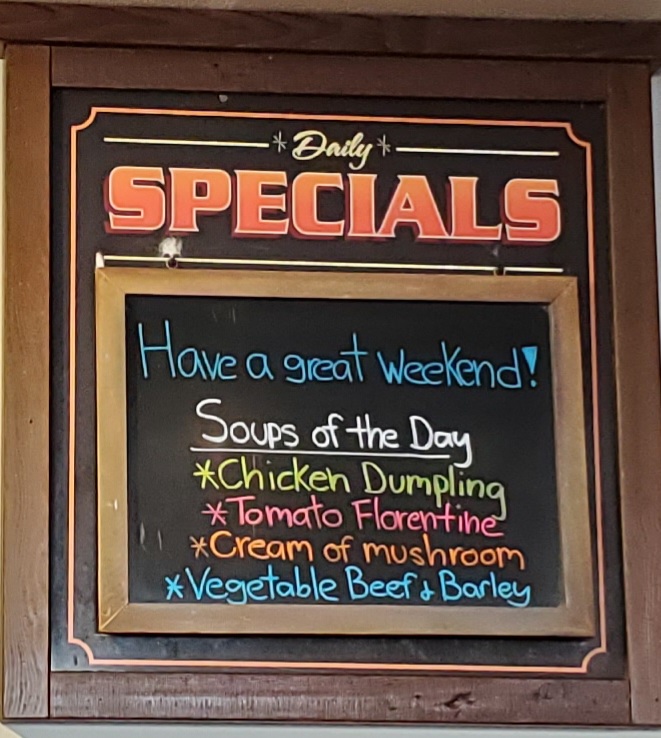 *Daily*
SPECIALS
Have a great weekend!
Soups of the Day
*Chicken Dumpling
*Tomato Florentine
*Cream of mushroom
*Vegetable Beef & Barley